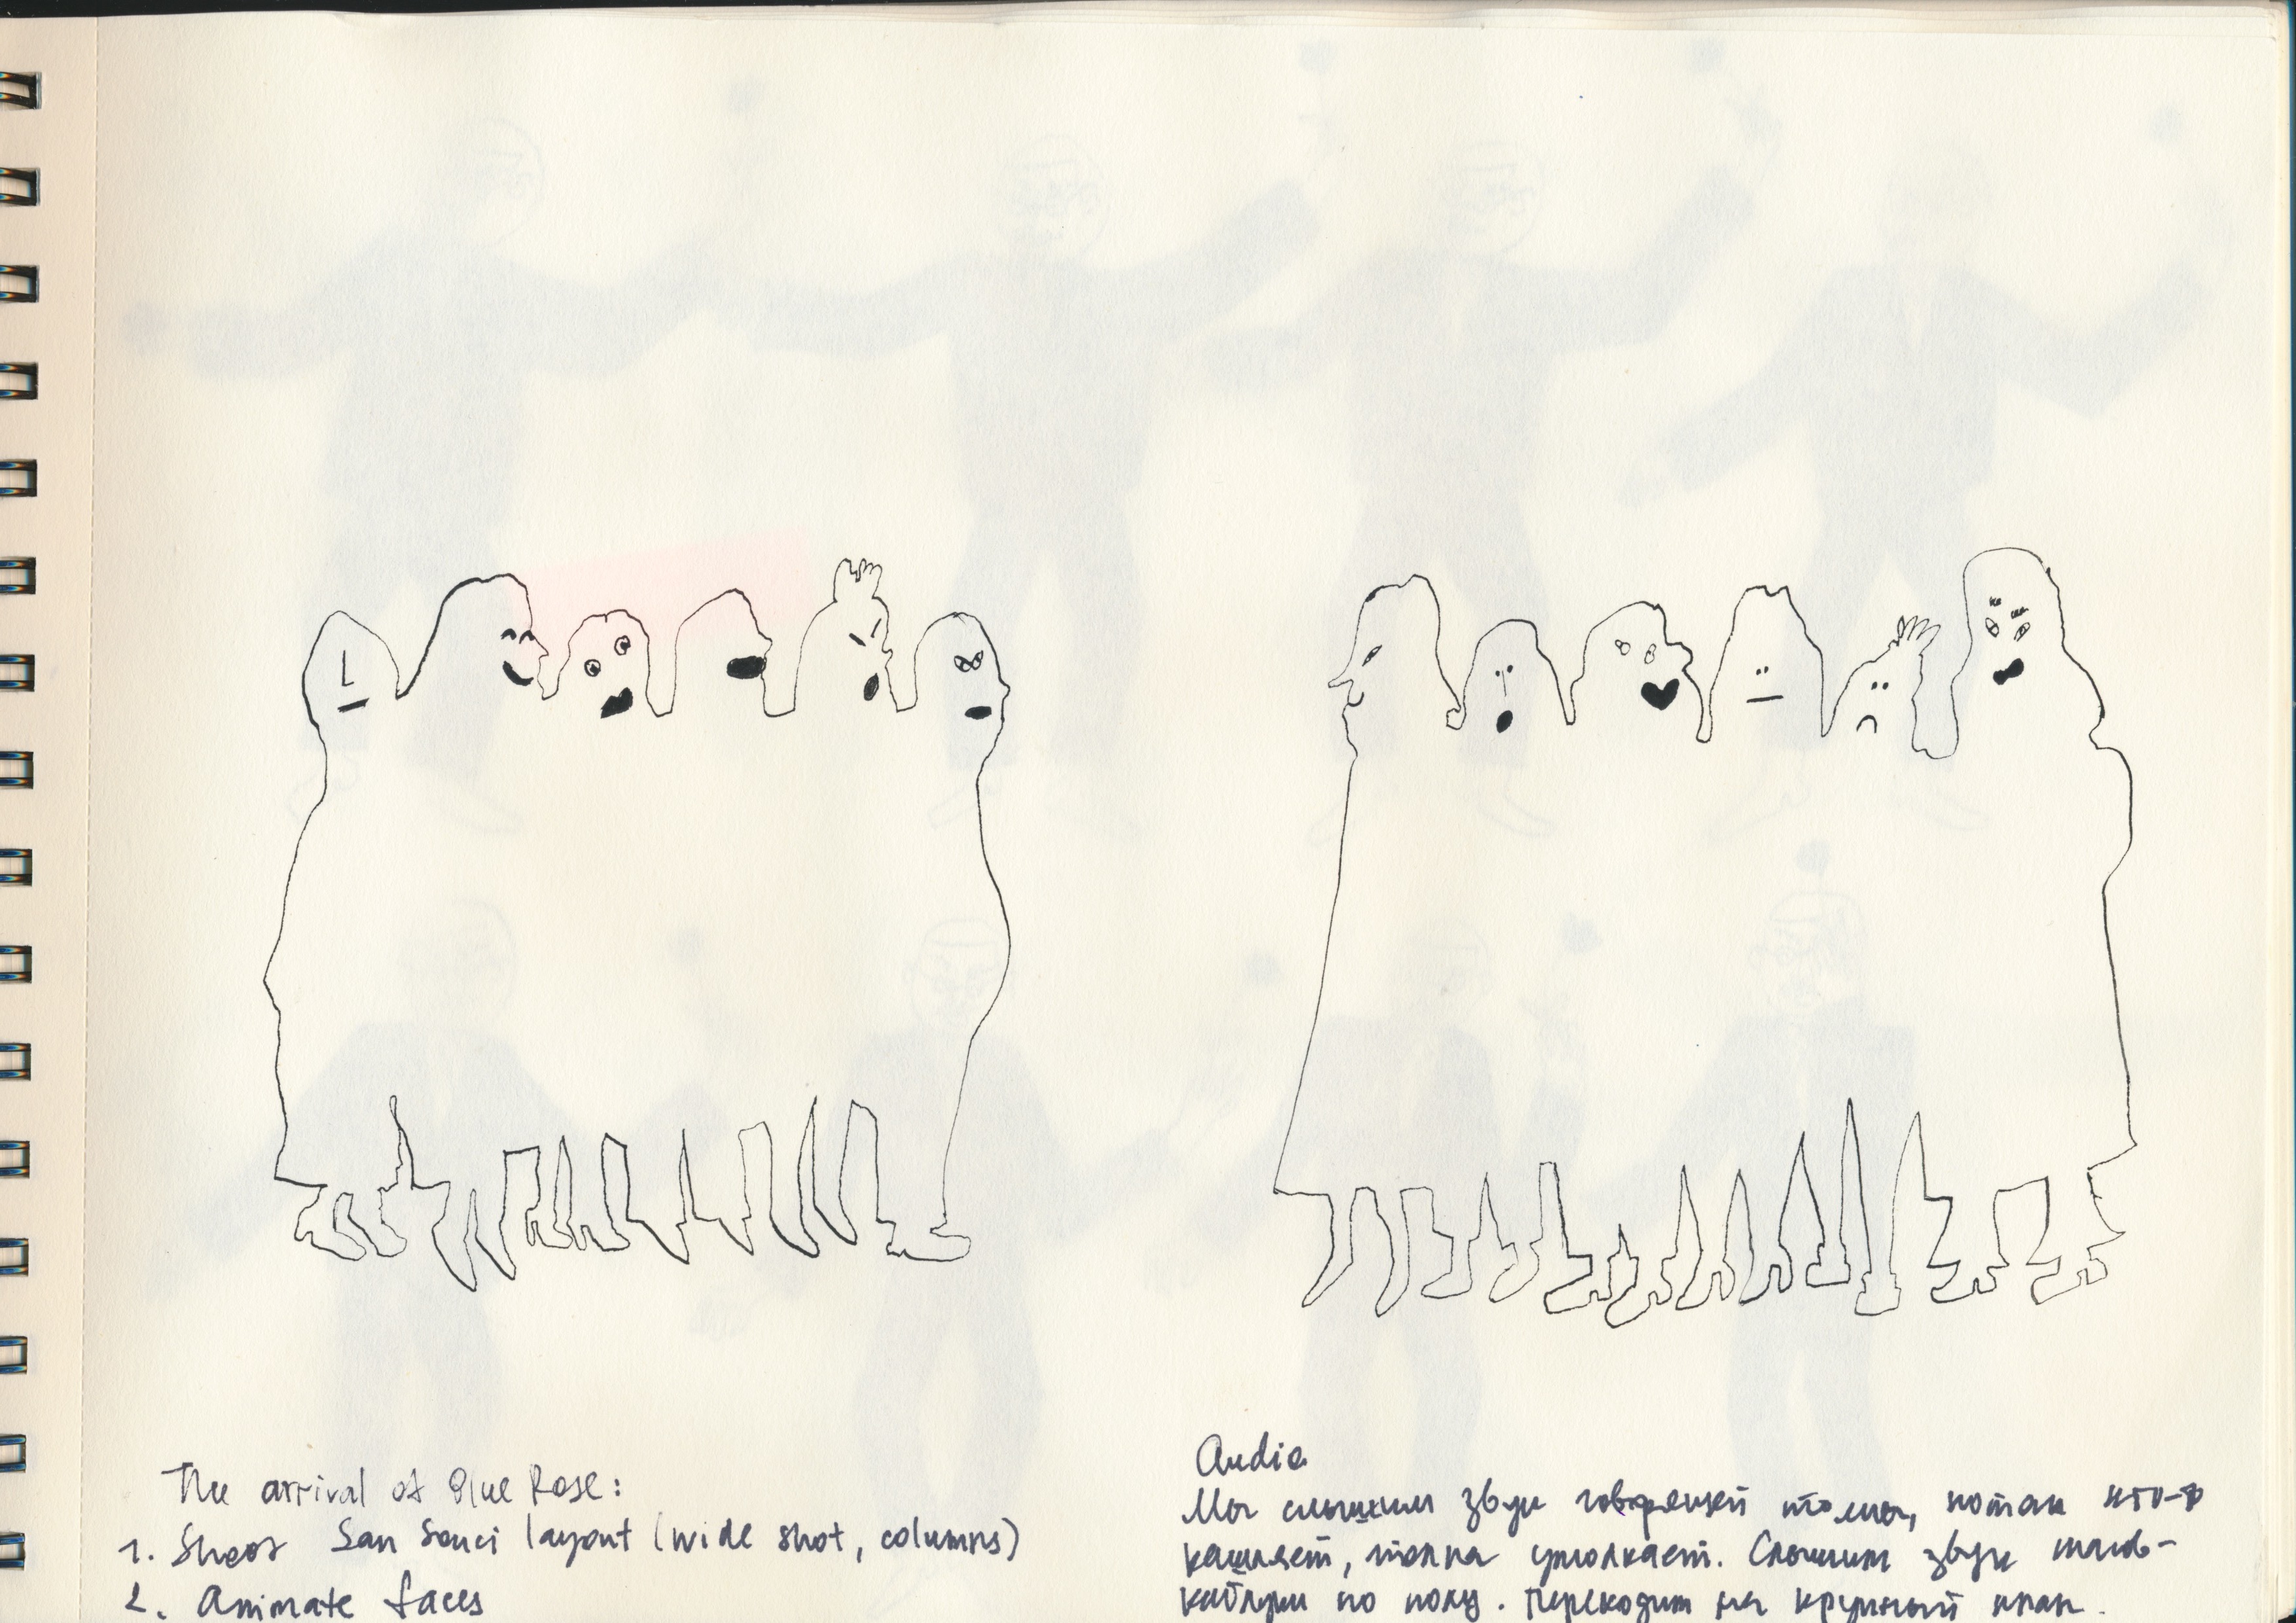 The arrival of Blue Rose:
1. Shoot San Souci layout (wide shot, columns)
2. Animate faces
Audio
Мы слышим звук говорящей толпы, потом кто-то
кашляет, толпа умолкает. Слышим звук шагов-
каблуки по полу. Переходим на крупный план.